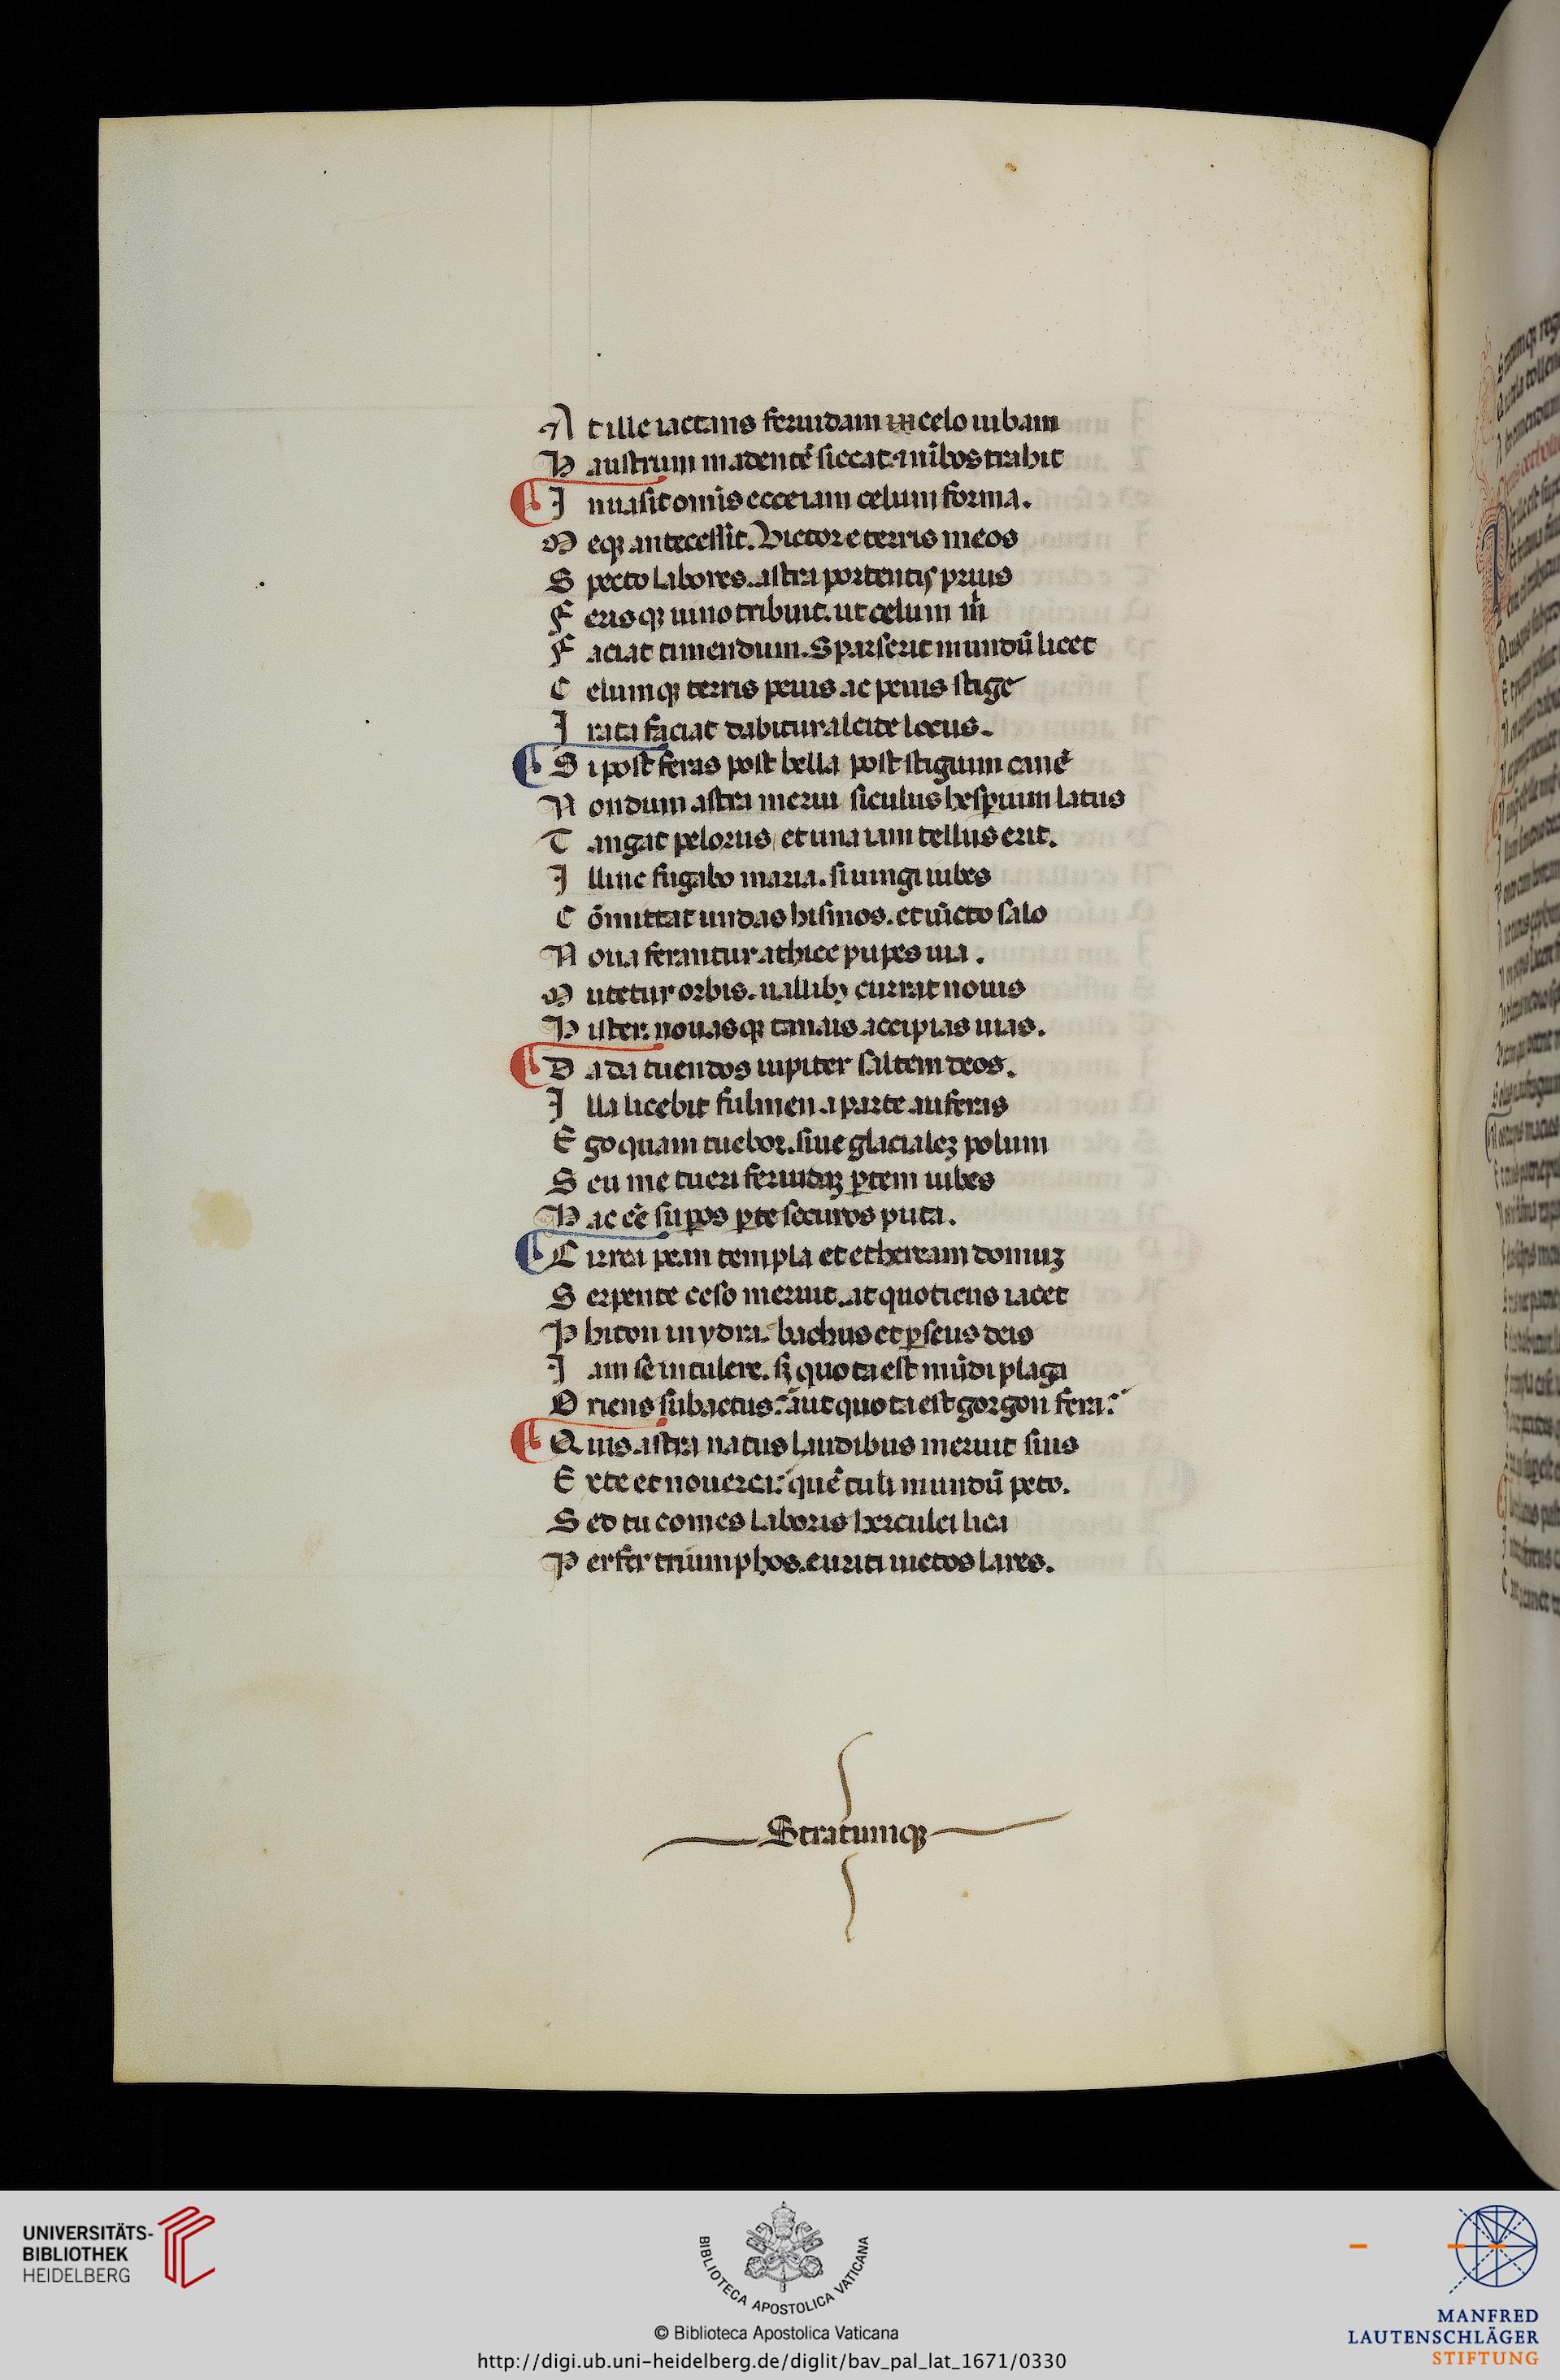 At ille iactans feruidam in celo iubam
Haustrum madentē siccat. ⁊ nībos trahit
Inuasit omīs ecce iam celum forma.
Meqꝫ antecessit. Victor e terris meos
Specto labores. astra portentis prius
Ferisqꝫ iuno tribuit. ut celum m̄
Faciat timendum. Sparserit mundū licet
Celumqꝫ terris peius ac peius stige
Irata faciat dabitur alcide locus.
Si post feras post bella post stigium canē
Nondum astra merui siculus hesperium latus
Tangat pelorus et una iam tellus erit.
Illinc fugabo maria. si iungi iubes
Cōmittat undas hismos. et iūcto salo
Noua ferantur athice pupes uia.
Mutetur orbis. uallibꝫ currat nouis
Hister. nouasqꝫ tanais accipias uias.
Da da tuendos iupiter saltem deos.
Illa licebit fulmen a parte auferas
Ego quam tuebor. siue glacialeꝫ polum
Seu me tueri feruidaꝫ ꝑtem iubes
Hac eē suꝑos ꝑte securos puta.
Cirrea pean templa et etheream domuꝫ
Serpente ceso meruit. at quotiens iacet
Phiton in ydra. bachus et ꝑseus deis
Iam se intulere. sꝫ quota est mūdi plaga
Oriens subactus. aut quota est gorgon fera.
Quis astra natus laudibus meruit suis
Ex te et nouerca. quē tuli mundū peto.
Sed tu comes laboris herculei lica
Perfer triumphos. euriti uictos lares.
Stratumqꝫ
UNIVERSITÄTS-
BIBLIOTHEK
HEIDELBERG
BIBLIOTECA APOSTOLICA VATICANA
© Biblioteca Apostolica Vaticana
http://digi.ub.uni-heidelberg.de/diglit/bav_pal_lat_1671/0330
MANFRED
LAUTENSCHLÄGER
STIFTUNG